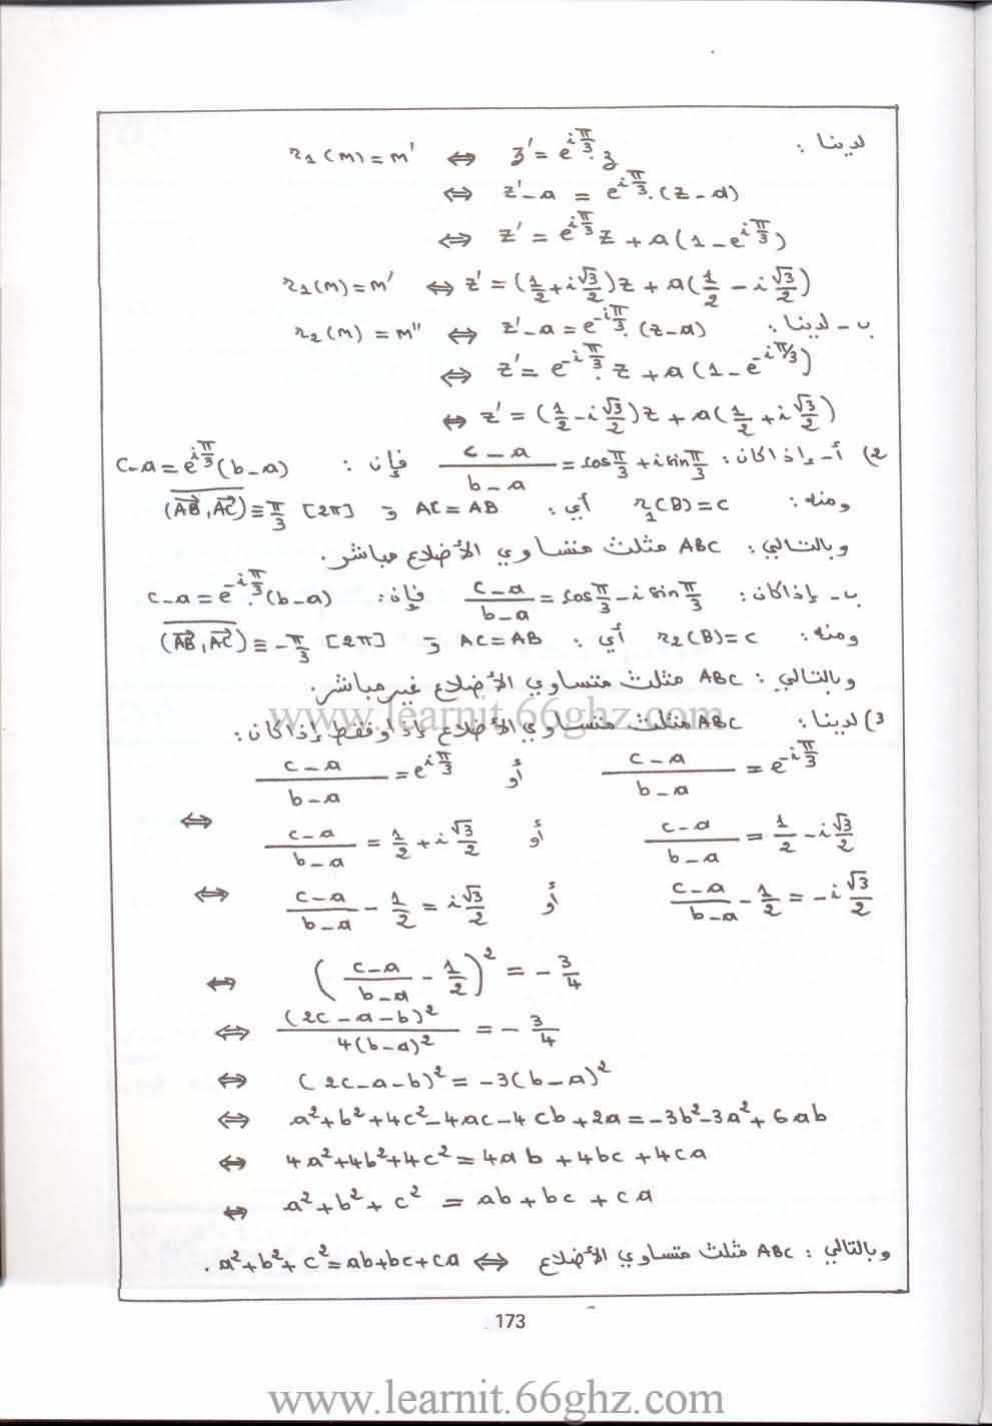 لدينا : r₁(M) = M' ⇔ z' = e^{iπ/3} . z
⇔ z' - a = e^{iπ/3} . (z - a)
⇔ z' = e^{iπ/3} z + a(1 - e^{iπ/3})
r₁(M) = M' ⇔ z' = (1/2 + i√3/2)z + a(1/2 - i√3/2)
ب - لدينا : r₂(M) = M" ⇔ z' - a = e^{-iπ/3} . (z - a)
⇔ z' = e^{-iπ/3} . z + a(1 - e^{-iπ/3})
⇔ z' = (1/2 - i√3/2)z + a(1/2 + i√3/2)
2) أ - إذا كان : (c - a)/(b - a) = cos π/3 + i sin π/3 فإن : c - a = e^{iπ/3}(b - a)
ومنه : r₁(B) = C أي : AC = AB و (AB, AC) ≡ π/3 [2π]
وبالتالي : ABC مثلث متساوي الأضلاع مباشر .
ب - إذا كان : (c - a)/(b - a) = cos π/3 - i sin π/3 فإن : c - a = e^{-iπ/3} . (b - a)
ومنه : r₂(B) = C أي : AC = AB و (AB, AC) ≡ -π/3 [2π]
وبالتالي : ABC مثلث متساوي الأضلاع غير مباشر .
www.learnit.66ghz.com
3) لدينا : ABC مثلث متساوي الأضلاع إذا وفقط إذا كان :
(c - a)/(b - a) = e^{iπ/3} أو (c - a)/(b - a) = e^{-iπ/3}
⇔ (c - a)/(b - a) = 1/2 + i√3/2 أو (c - a)/(b - a) = 1/2 - i√3/2
⇔ (c - a)/(b - a) - 1/2 = i√3/2 أو (c - a)/(b - a) - 1/2 = -i√3/2
⇔ ((c - a)/(b - a) - 1/2)² = -3/4
⇔ (2c - a - b)²/4(b - a)² = -3/4
⇔ (2c - a - b)² = -3(b - a)²
⇔ a² + b² + 4c² - 4ac - 4cb + 2a = -3b² - 3a² + 6ab
⇔ 4a² + 4b² + 4c² = 4ab + 4bc + 4ca
⇔ a² + b² + c² = ab + bc + ca
وبالتالي : ABC مثلث متساوي الأضلاع ⇔ a² + b² + c² = ab + bc + ca .
173
www.learnit.66ghz.com